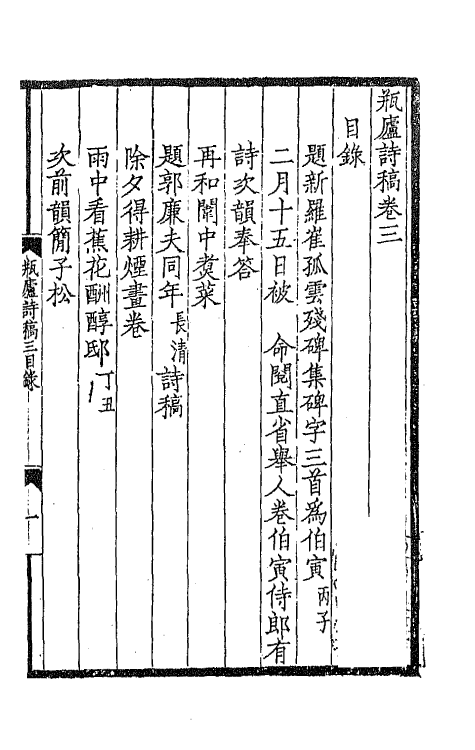 瓶廬詩稿卷三
目錄
題新羅崔孤雲殘碑集碑字三首為伯寅丙子
二月十五日被 命閱直省舉人卷伯寅侍郎有
詩次韻奉答
再和闈中煑菜
題郭廉夫同年長清詩稿
除夕得耕煙畫卷
雨中看蕉花酬醇邸丁丑
次前韻簡子松
瓶廬詩稿三目錄
一